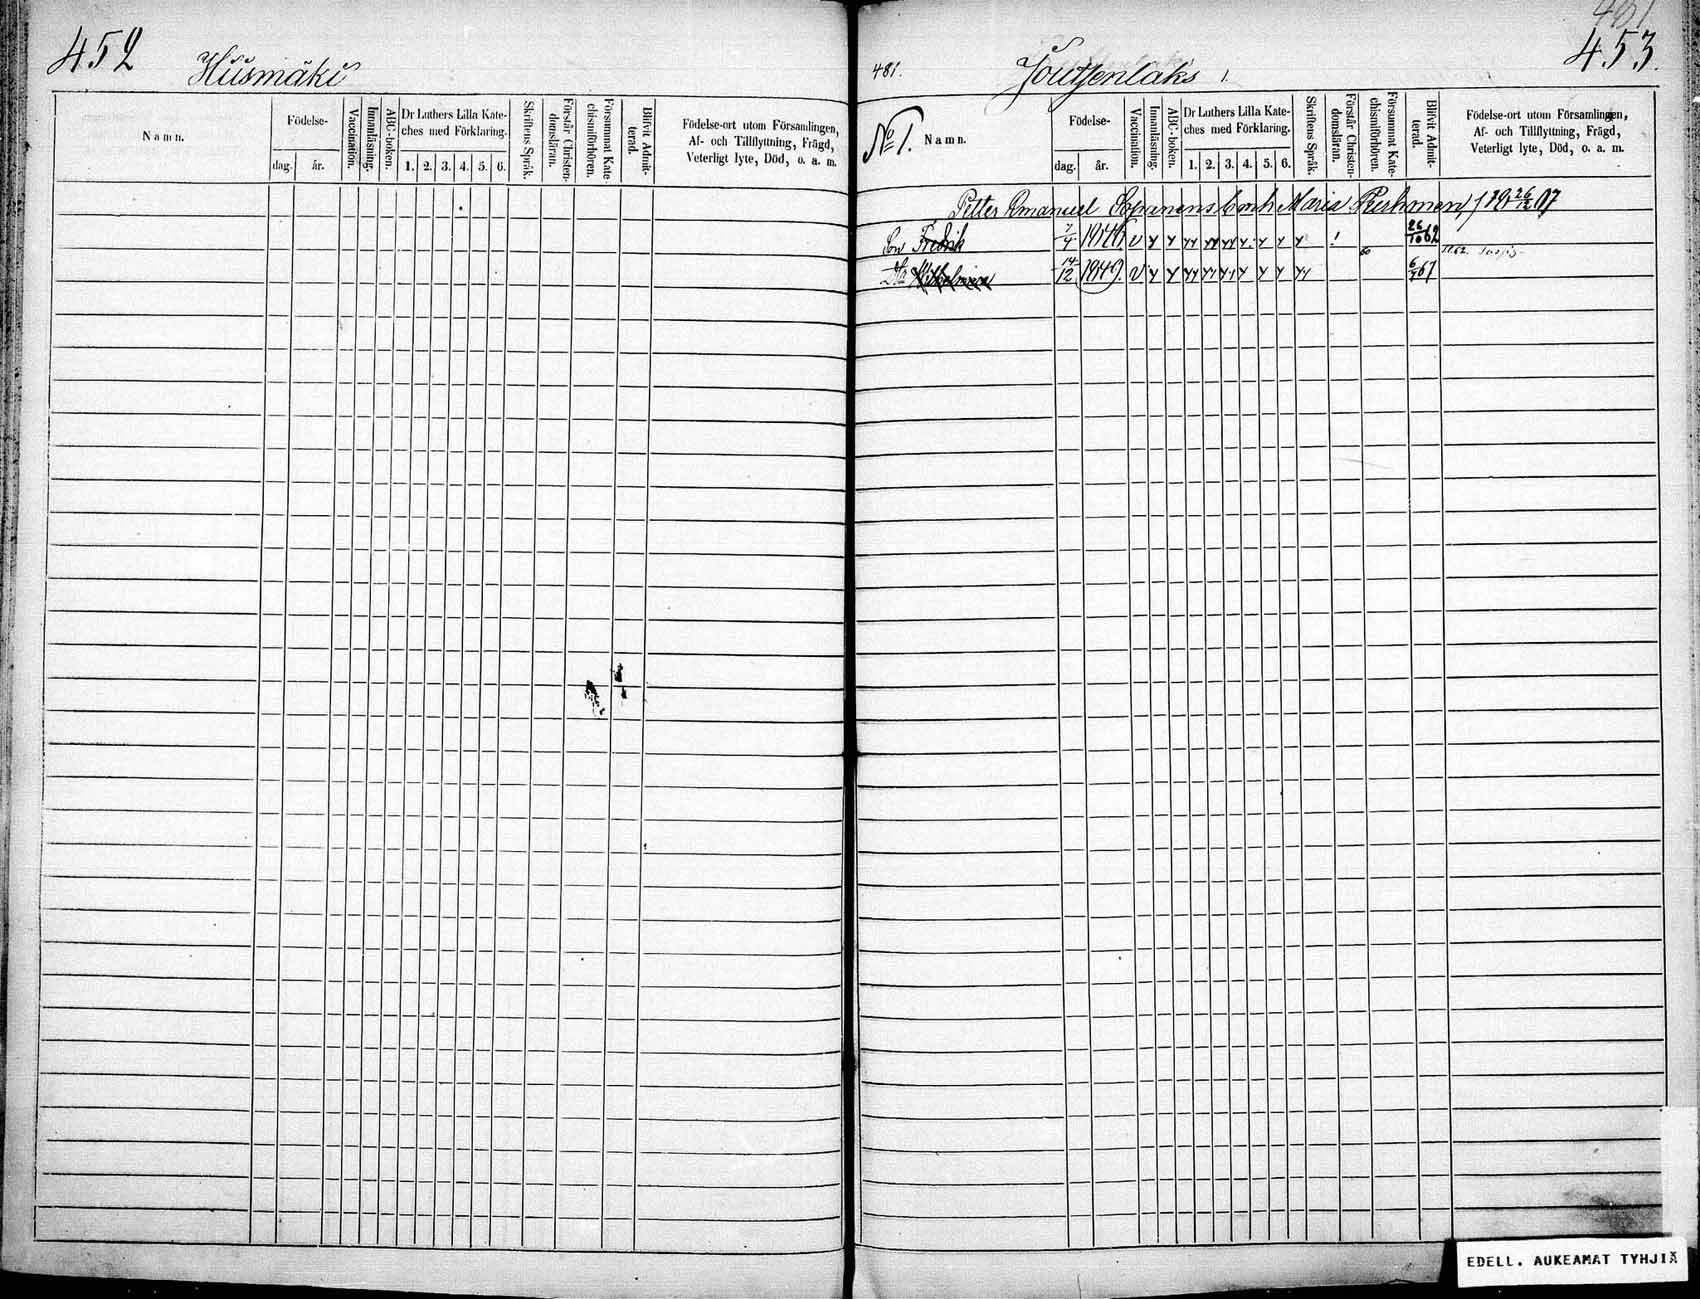 452 Hiismäki
Namn.
Födelse-
dag. år.
Vaccination.
Innanläsning.
ABC-boken.
Dr Luthers Lilla Kate-
ches med Förklaring.
1. 2. 3. 4. 5. 6.
Skriftens Språk.
Förstår Christen-
domsläran.
Försummat Kate-
chismiförhören.
Blifvit Admit-
terad.
Födelse-ort utom Församlingen,
Af- och Tillflyttning, Frägd,
Veterligt lyte, Död, o. a. m.
481. Joutsenlaks 1
453.
No 1. Namn.
Födelse-
dag. år.
Vaccination.
Innanläsning.
ABC-boken.
Dr Luthers Lilla Kate-
ches med Förklaring.
1. 2. 3. 4. 5. 6.
Skriftens Språk.
Förstår Christen-
domsläran.
Försummat Kate-
chismiförhören.
Blifvit Admit-
terad.
Födelse-ort utom Församlingen,
Af- och Tillflyttning, Frägd,
Veterligt lyte, Död, o. a. m.
Petter Emanuel Maria
Son Fredrik 7/4 1846 v 26/10 62
Wilhelmina 14/12 1849. v 67
EDELL. AUKEAMAT TYHJIÄ